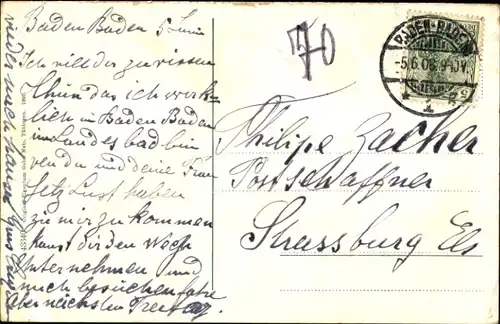 Baden Baden 5 Juni
Ich will dir zu wissen
Thun das ich wirk-
lich in Baden Baden
im Landes bad bin
ven du und deine Frau
Jetz Lust haben
zu mir zu kommen
kanst dir den Wech
Unternehmen und
mich besuchen
über nächsten Freitag
wieder nach Hause
70
BADEN-BADEN
-5.6.06.
Philipe Zacher
Postschaffner
Strassburg Els